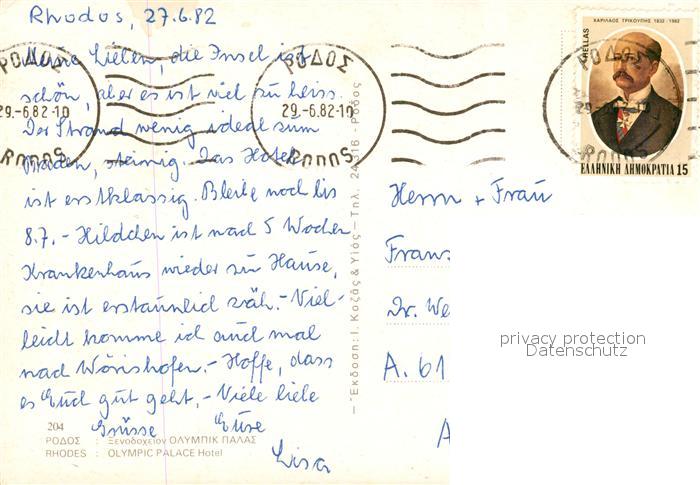 Rhodos, 27.6.82
Meine Lieben, die Insel ist
schön, aber es ist viel zu heiss.
Der Strand wenig ideal zum
Baden, steinig. Das Hotel
ist erstklassig. Bleibe noch bis
8.7. - Hildchen ist nach 5 Wochen
Krankenhaus wieder zu Hause,
sie ist erstaunlich zäh. - Viel-
leicht komme ich auch mal
nach Wörishofen. - Hoffe, dass
es Euch gut geht. - Viele liebe
Grüsse Eure
Lisa
204
ΡΟΔΟΣ : Ξενοδοχείον ΟΛΥΜΠΙΚ ΠΑΛΑΣ
RHODES : OLYMPIC PALACE Hotel
ΡΟΔΟΣ
29.-6.82.10
RODOS
ΡΟΔΟΣ
29.-6.82.10
RODOS
Ἔκδοσις: Ι. Κοζᾶς & Υἱός - Τηλ. 24.316 - Ρόδος
ΧΑΡΙΛΑΟΣ ΤΡΙΚΟΥΠΗΣ 1832-1982
HELLAS
ΕΛΛΗΝΙΚΗ ΔΗΜΟΚΡΑΤΙΑ 15
ΡΟΔΟΣ
RODOS
Herrn + Frau
Franz
Dr. We
A. 61
A
privacy protection
Datenschutz